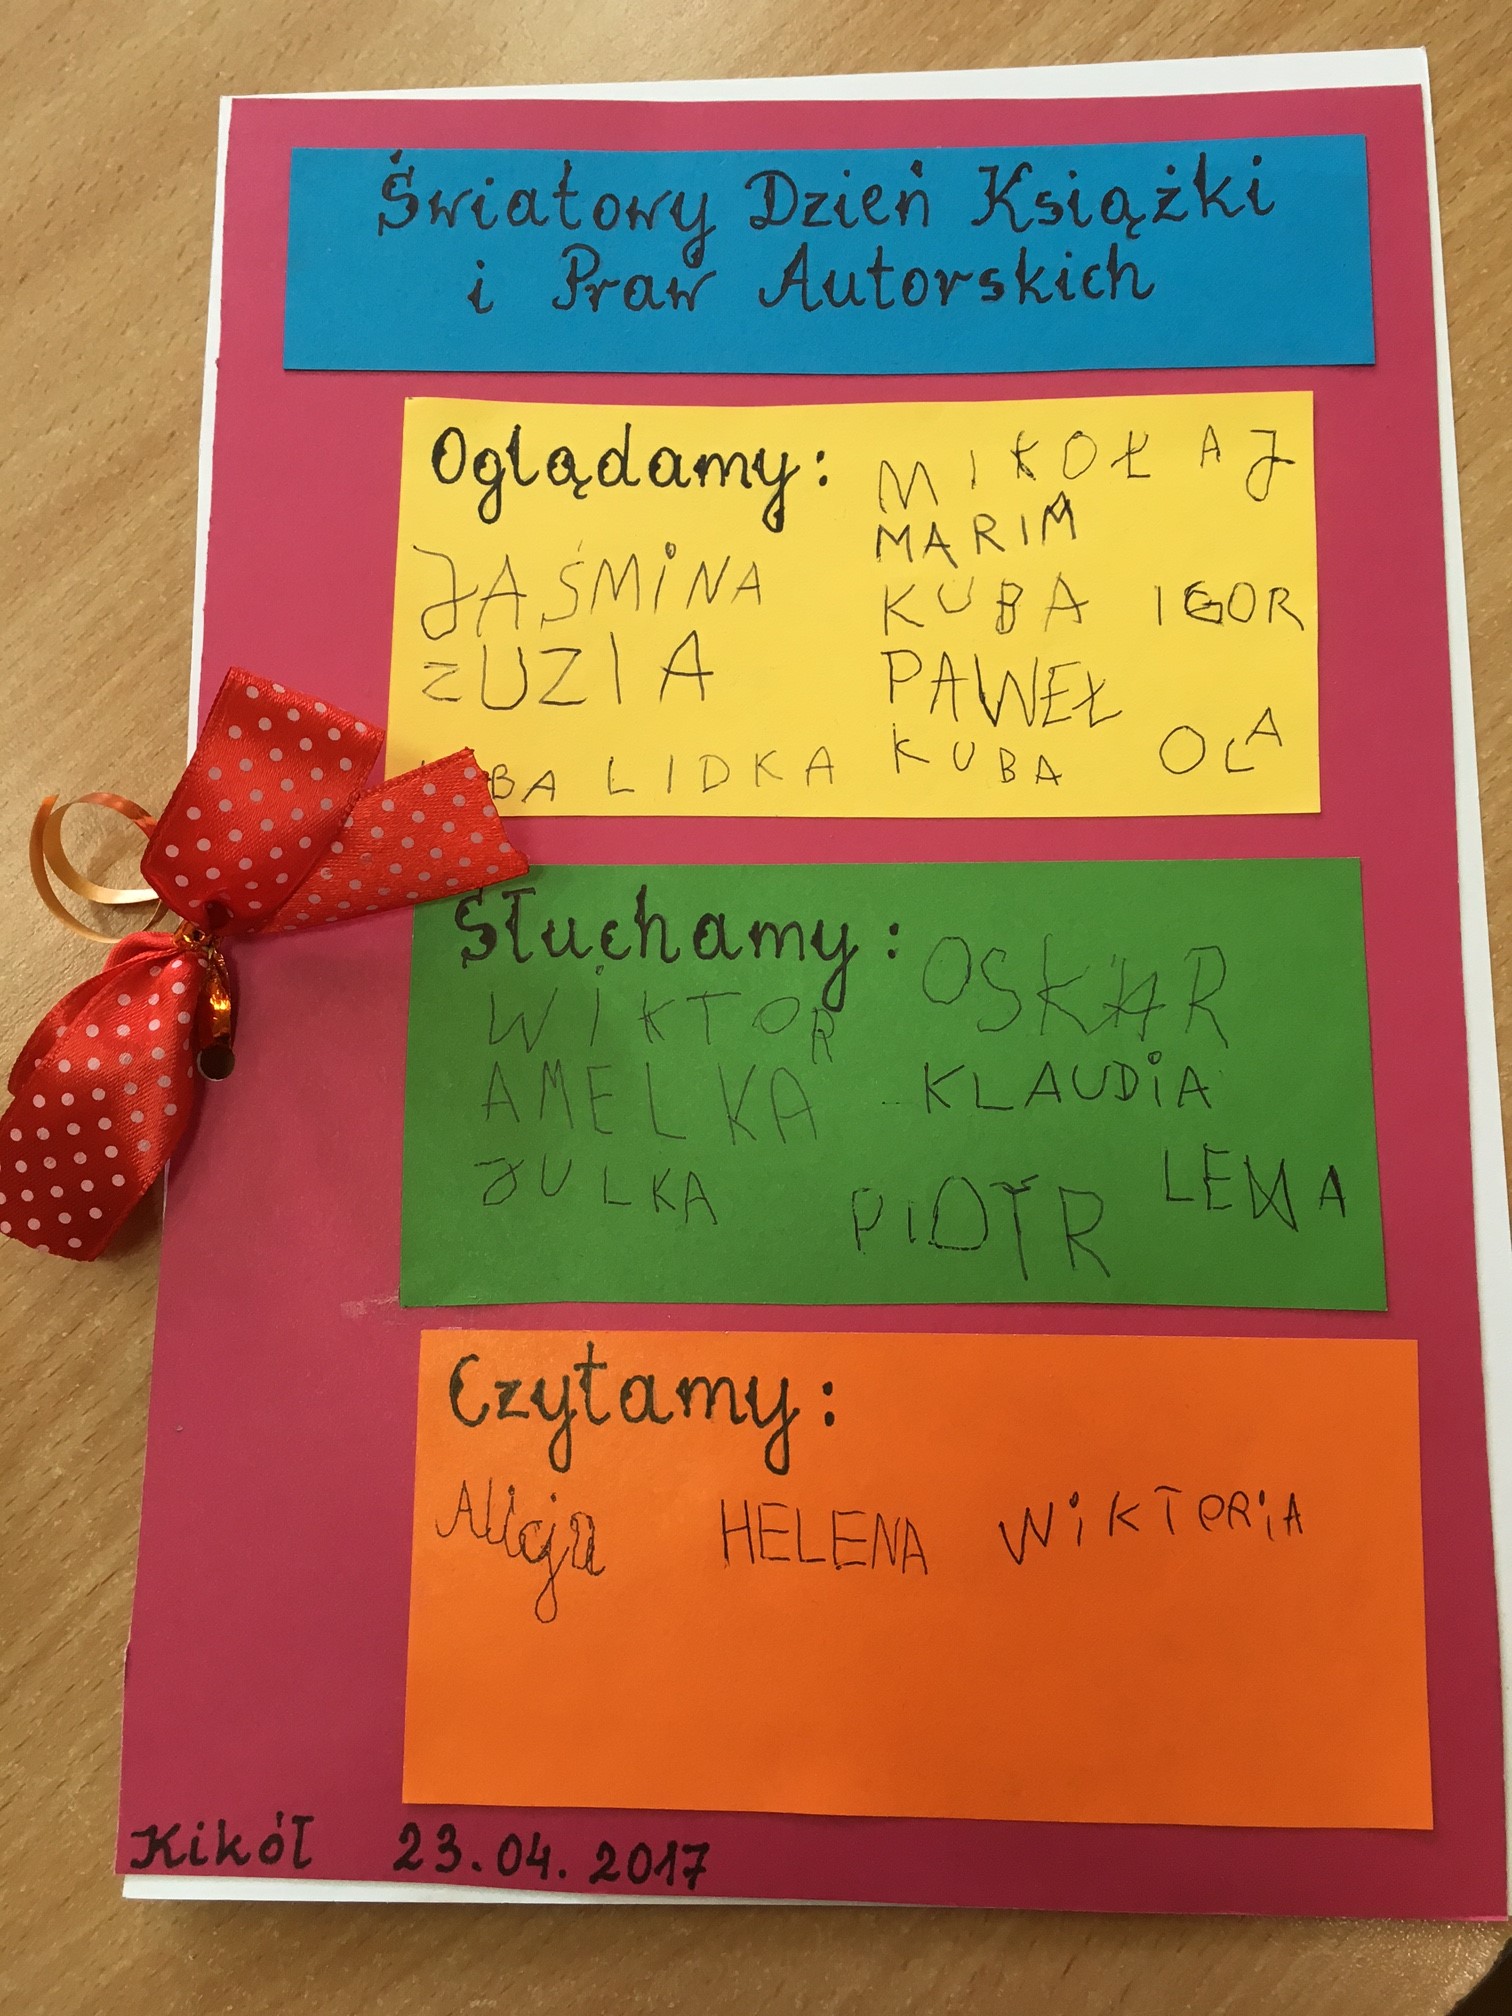 Światowy Dzień Książki
i Praw Autorskich
Oglądamy:
MIKOŁAJ
MARIM
JAŚMINA
KUBA IGOR
ZUZIA
PAWEŁ
LIDKA
KUBA OLA
Słuchamy:
OSKAR
WiKTOR
AMELKA
KLAUDiA
JULKA
PiOTR
Czytamy:
Alicja HELENA WiKTORiA
Kikół 23.04.2017